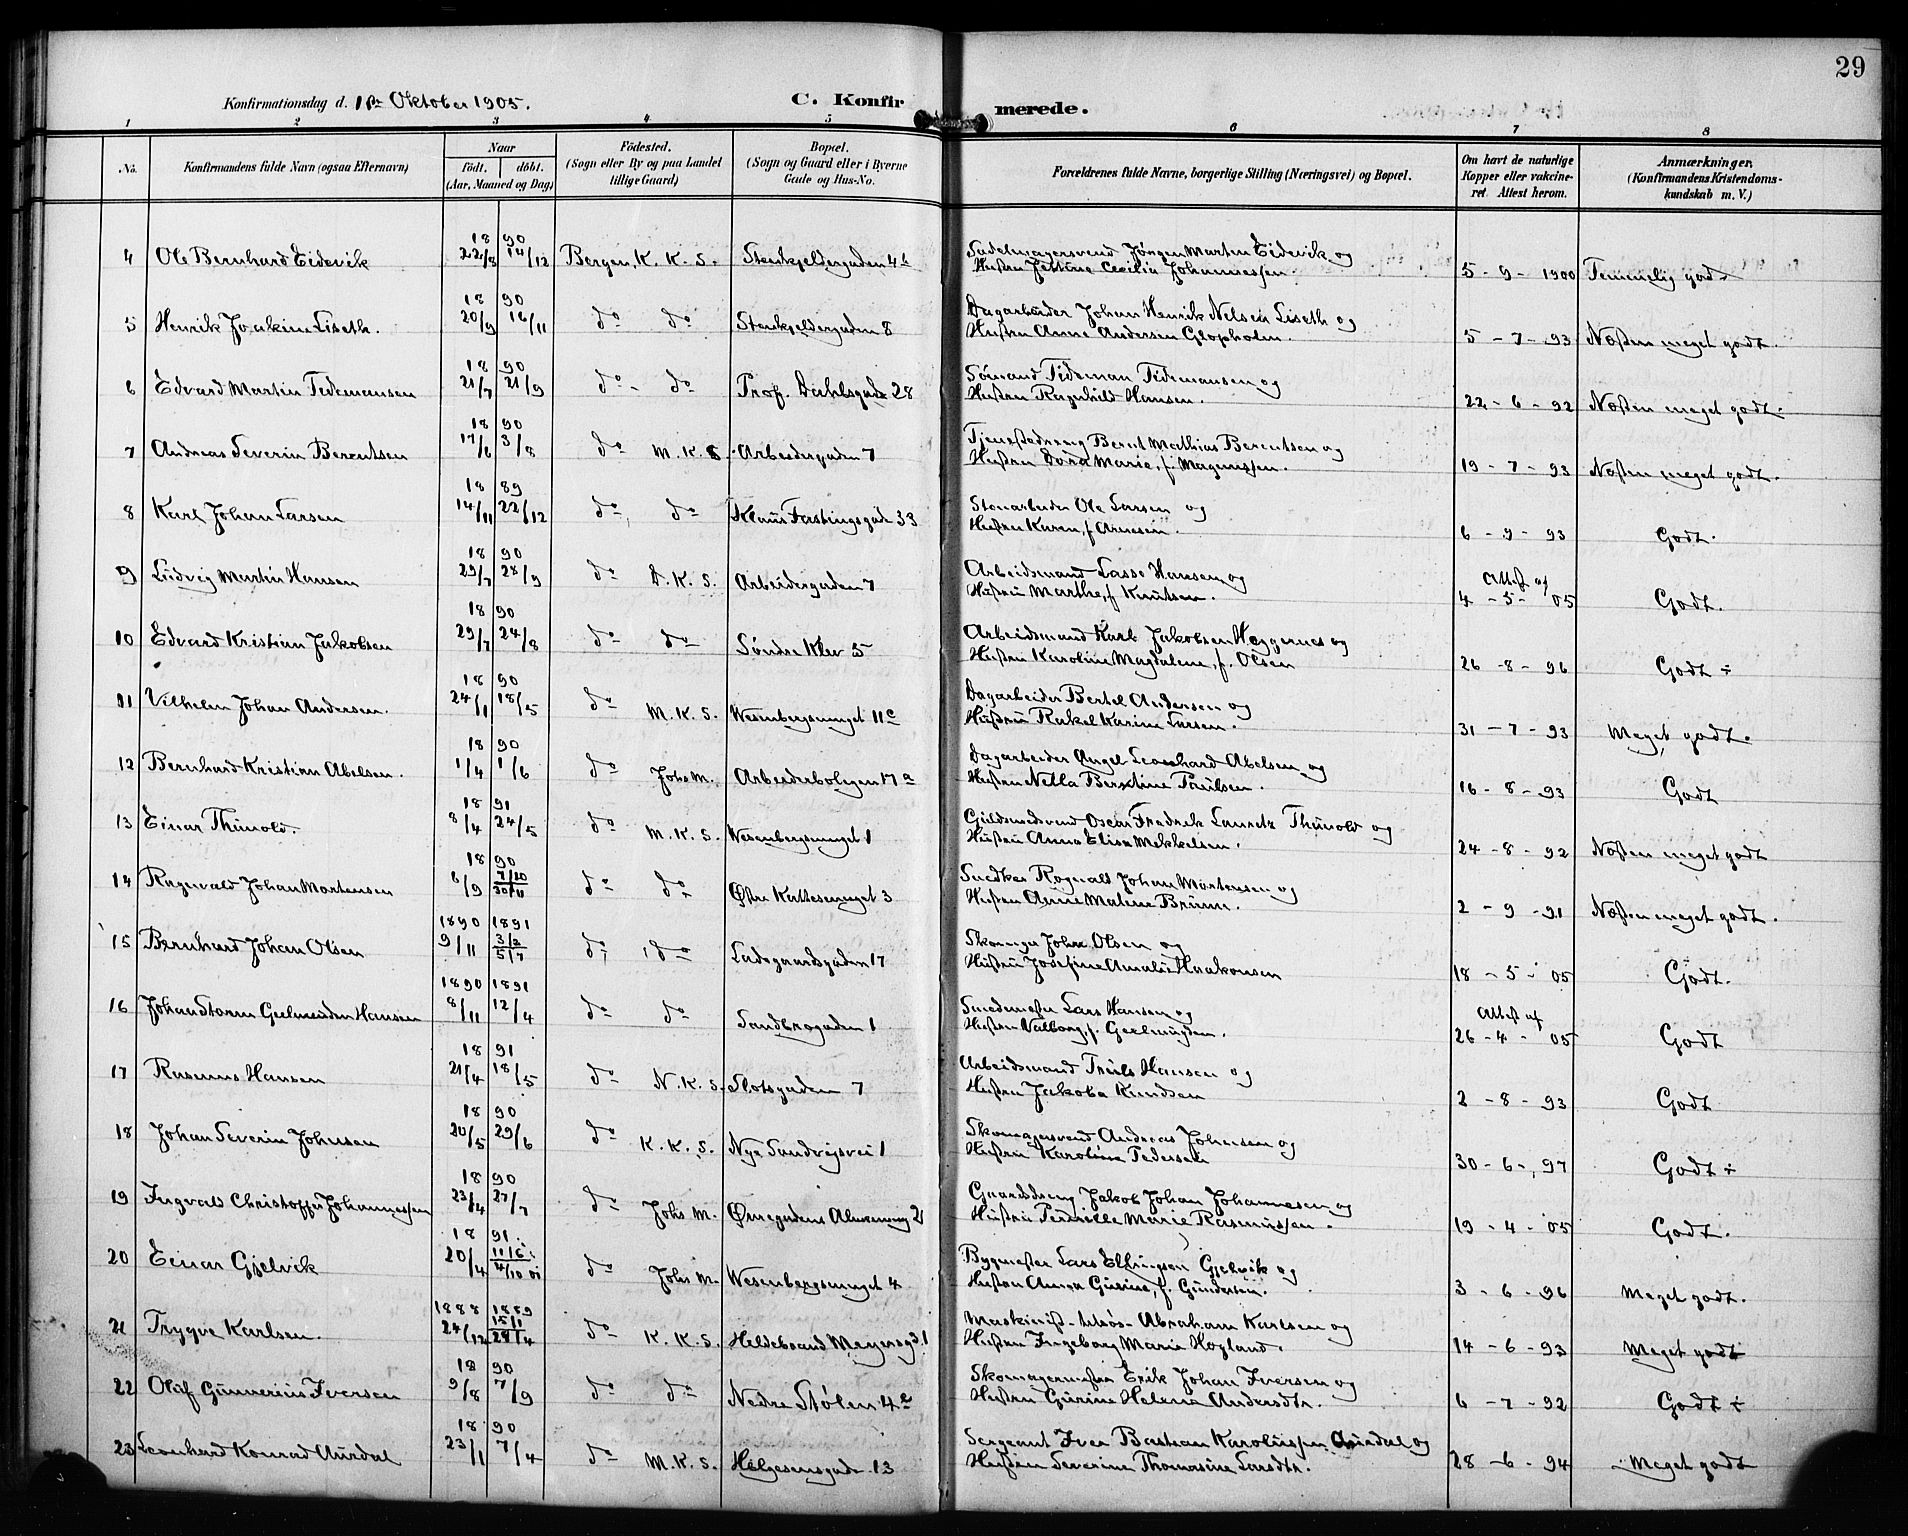 29
Konfirmationsdag d. 1ste Oktober 1905.
C. Konfirmerede.
1 2 3 4 5 6 7 8
No. Konfirmandens fulde Navn (ogsaa Efternavn) Naar født. døbt. (Aar, Maaned og Dag) Fødested. (Sogn eller By og paa Landet tillige Gaard) Bopæl. (Sogn og Gaard eller i Byerne Gade og Hus-No. Forældrenes fulde Navne, borgerlige Stilling (Næringsvei) og Bopæl. Om havt de naturlige Kopper eller vakcineret. Attest herom. Anmærkninger, (Konfirmandens Kristendomskundskab m. V.)
18 90
4 Ole Bernhard Eidevik 22/8 14/12 Bergen, K. K. S. Stenkjeldergaden 4b Sadelmagersvend Jørgen Martin Eidevik og
Hustru Jettine Cecilia Johannessen 5 - 9 - 1900 Temmelig godt
18 90
5 Henrik Joakim Liseth. 20/9 16/11 do do Stenkjeldergaden 8 Dagarbeider Johan Henrik Nelsen Liseth og
Hustru Anne Andersen Glopholm. 5 - 7 - 93 Næsten meget godt.
18 90
6 Edvard Martin Tidemansen 21/7 21/9 do - do Prof. Dahlsgade 28 Sømand Tideman Tidemansen og
Hustru Ragnhild Hansen. 22 - 6 - 92 Næsten meget godt.
18 90
7 Andreas Severin Berentsen 17/6 3/8 do M. K. S. Arbeidergaden 7 Tjenestedreng Bernt Mathias Berentsen og
Hustru Dora Marie, f. Magnussen. 19 - 7 - 93 Næsten meget godt.
18 89
8 Karl Johan Larsen 14/11 22/12 do, do Klaus Fastingsgade 33 Stenarbeider Ole Larsen og
Hustru Karen, f. Arnesen. 6 - 9 - 93 Godt.
18 90
9 Ludvig Martin Hansen 29/7 28/9 do D. K. S. Arbeidergaden 7 Arbeidsmand Lasse Hansen og
Hustru Marthe, f. Knutsen. Attest af 4 - 5 - 05 Godt.
18 90
10 Edvard Kristian Jakobsen 29/7 24/8 do do Søndre Klev 5 Arbeidsmand Karl Jakobsen Heggernes og
Hustru Karoline Magdalene, f. Olsen 26 - 8 - 96 Godt ÷
18 90
11 Vilhelm Johan Andersen. 24/1 18/5 do M. K. S. Wesenbergsmuget 11c Dagarbeider Bertel Andersen og
Hustru Rakel Karine Larsen. 31 - 7 - 93 Meget godt.
18 90
12 Bernhard Kristian Abelsen. 1/4 1/6 do Johs M. Arbeiderboligen 17a Dagarbeider Angel Leonhard Abelsen og
Hustru Nella Berntine Paulsen. 16 - 8 - 93 Godt
18 91
13 Einar Thunold. 8/4 24/5 do M. K. S. Wesenbergsmuget 1 Guldsmedsvend Oscar Fredrik Lauretz Thunold og
Hustru Anna Elisa Mekkelsen. 24 - 8 - 92 Næsten meget godt
18 90
14 Ragnvald Johan Mortensen 6/9 7/10 30/11 do do Østre Kattesmuget 3 Snedker Rognald Johan Mortensen og
Hustru Anne Malene Bruun. 2 - 9 - 91 Næsten meget godt.
1890 1891
15 Bernhard Johan Olsen 9/11 3/2 5/7 do do Ladegaardsgaden 17 John Olsen og
Hustru Josefine Amalie Haakonsen 18 - 5 - 05 Godt.
1890 1891
16 Johan Storm Geelmuyden Hansen 8/11 12/4 do do Sandbrogaden 1 Smedemester Lars Hansen og
Hustru Valborg, f. Geelmuyden. Attest af 26 - 4 - 05 Godt
18 91
17 Rasmus Hansen 21/4 18/5 do N. K. S. Slotsgaden 7 Arbeidsmand Truls Hansen og
Hustru Jakoba Knudsen 2 - 8 - 93 Godt
18 90
18 Johan Severin Johnsen 20/5 29/6 do K. K. S. Nye Sandvigsvei 1 Skomagersvend Andreas Johnsen og
Hustru Karoline Pedersen 30 - 6 - 97 Godt ÷
18 90
19 Ingvald Christoffer Johannessen 23/4 27/7 do Johs M. Ørregadens Almenning 21 Gaardsdreng Jakob Johan Johannesen og
Hustru Pernille Marie Rasmussen. 19 - 4 - 05 Godt.
18 91
20 Einar Gjelvik 20/4 11/6 4/10 01 do Johs M. Wesenbergsmuget 4 Bygmester Lars Ellingsen Gjelvik og
Hustru Anna Gurine, f. Gundersen. 3 - 6 - 96 Meget godt.
1888 1889
21 Trygve Karlsen. 24/12 15/1 28/4 do K. K. S. Hildebrand Meyersg 31 Abraham Karlsen og
Hustru Ingeborg Marie Hogland. 14 - 6 - 93 Meget godt
18 90
22 Olaf Gunnerius Iversen 9/8 7/9 do do Nedre Stølen 4c Skomagermester Erik Johan Iversen og
Hustru Gurine Helene Andersdtr. 6 - 7 - 92 Godt ÷
18 90
23 Leonhard Konrad Aurdal 23/1 7/4 do M. K. S. Helgesensgade 13 Sergeant Iver Bastian Karolussen Aurdal og
Hustru Severine Thomasine Larsdtr. 28 - 6 - 94 Meget godt